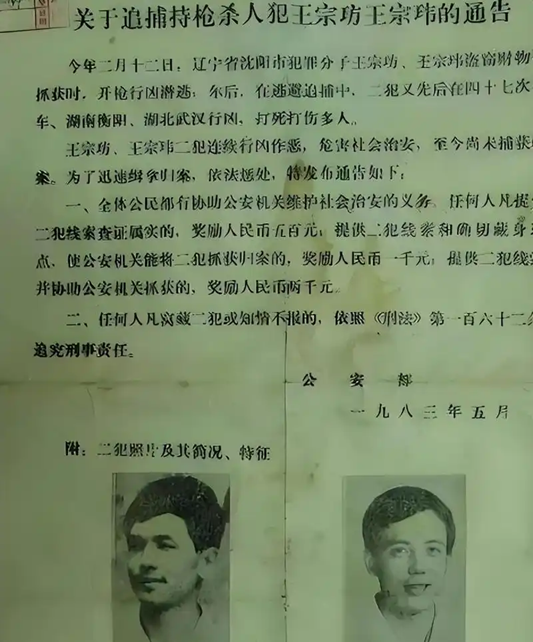 关于追捕持枪杀人犯王宗㧍王宗玮的通告
今年二月十二日，辽宁省沈阳市犯罪分子王宗㧍、王宗玮盗窃财物
抓获时，开枪行凶潜逃；尔后，在逃避追捕中，二犯又先后在四十七次
车、湖南衡阳、湖北武汉行凶，打死打伤多人。
王宗㧍、王宗玮二犯连续行凶作恶，危害社会治安，至今尚未捕获
案。为了迅速缉拿归案，依法惩处，特发布通告如下：
一、全体公民都有协助公安机关维护社会治安的义务。任何人凡提
二犯线索查证属实的，奖励人民币五百元；提供二犯线索和确切藏身
点，使公安机关能将二犯抓获归案的，奖励人民币一千元；提供二犯线
并协助公安机关抓获的，奖励人民币两千元。
二、任何人凡窝藏二犯或知情不报的，依照《刑法》第一百六十二
追究刑事责任。
公安部
一九八三年五月
附：二犯照片及其简况、特征